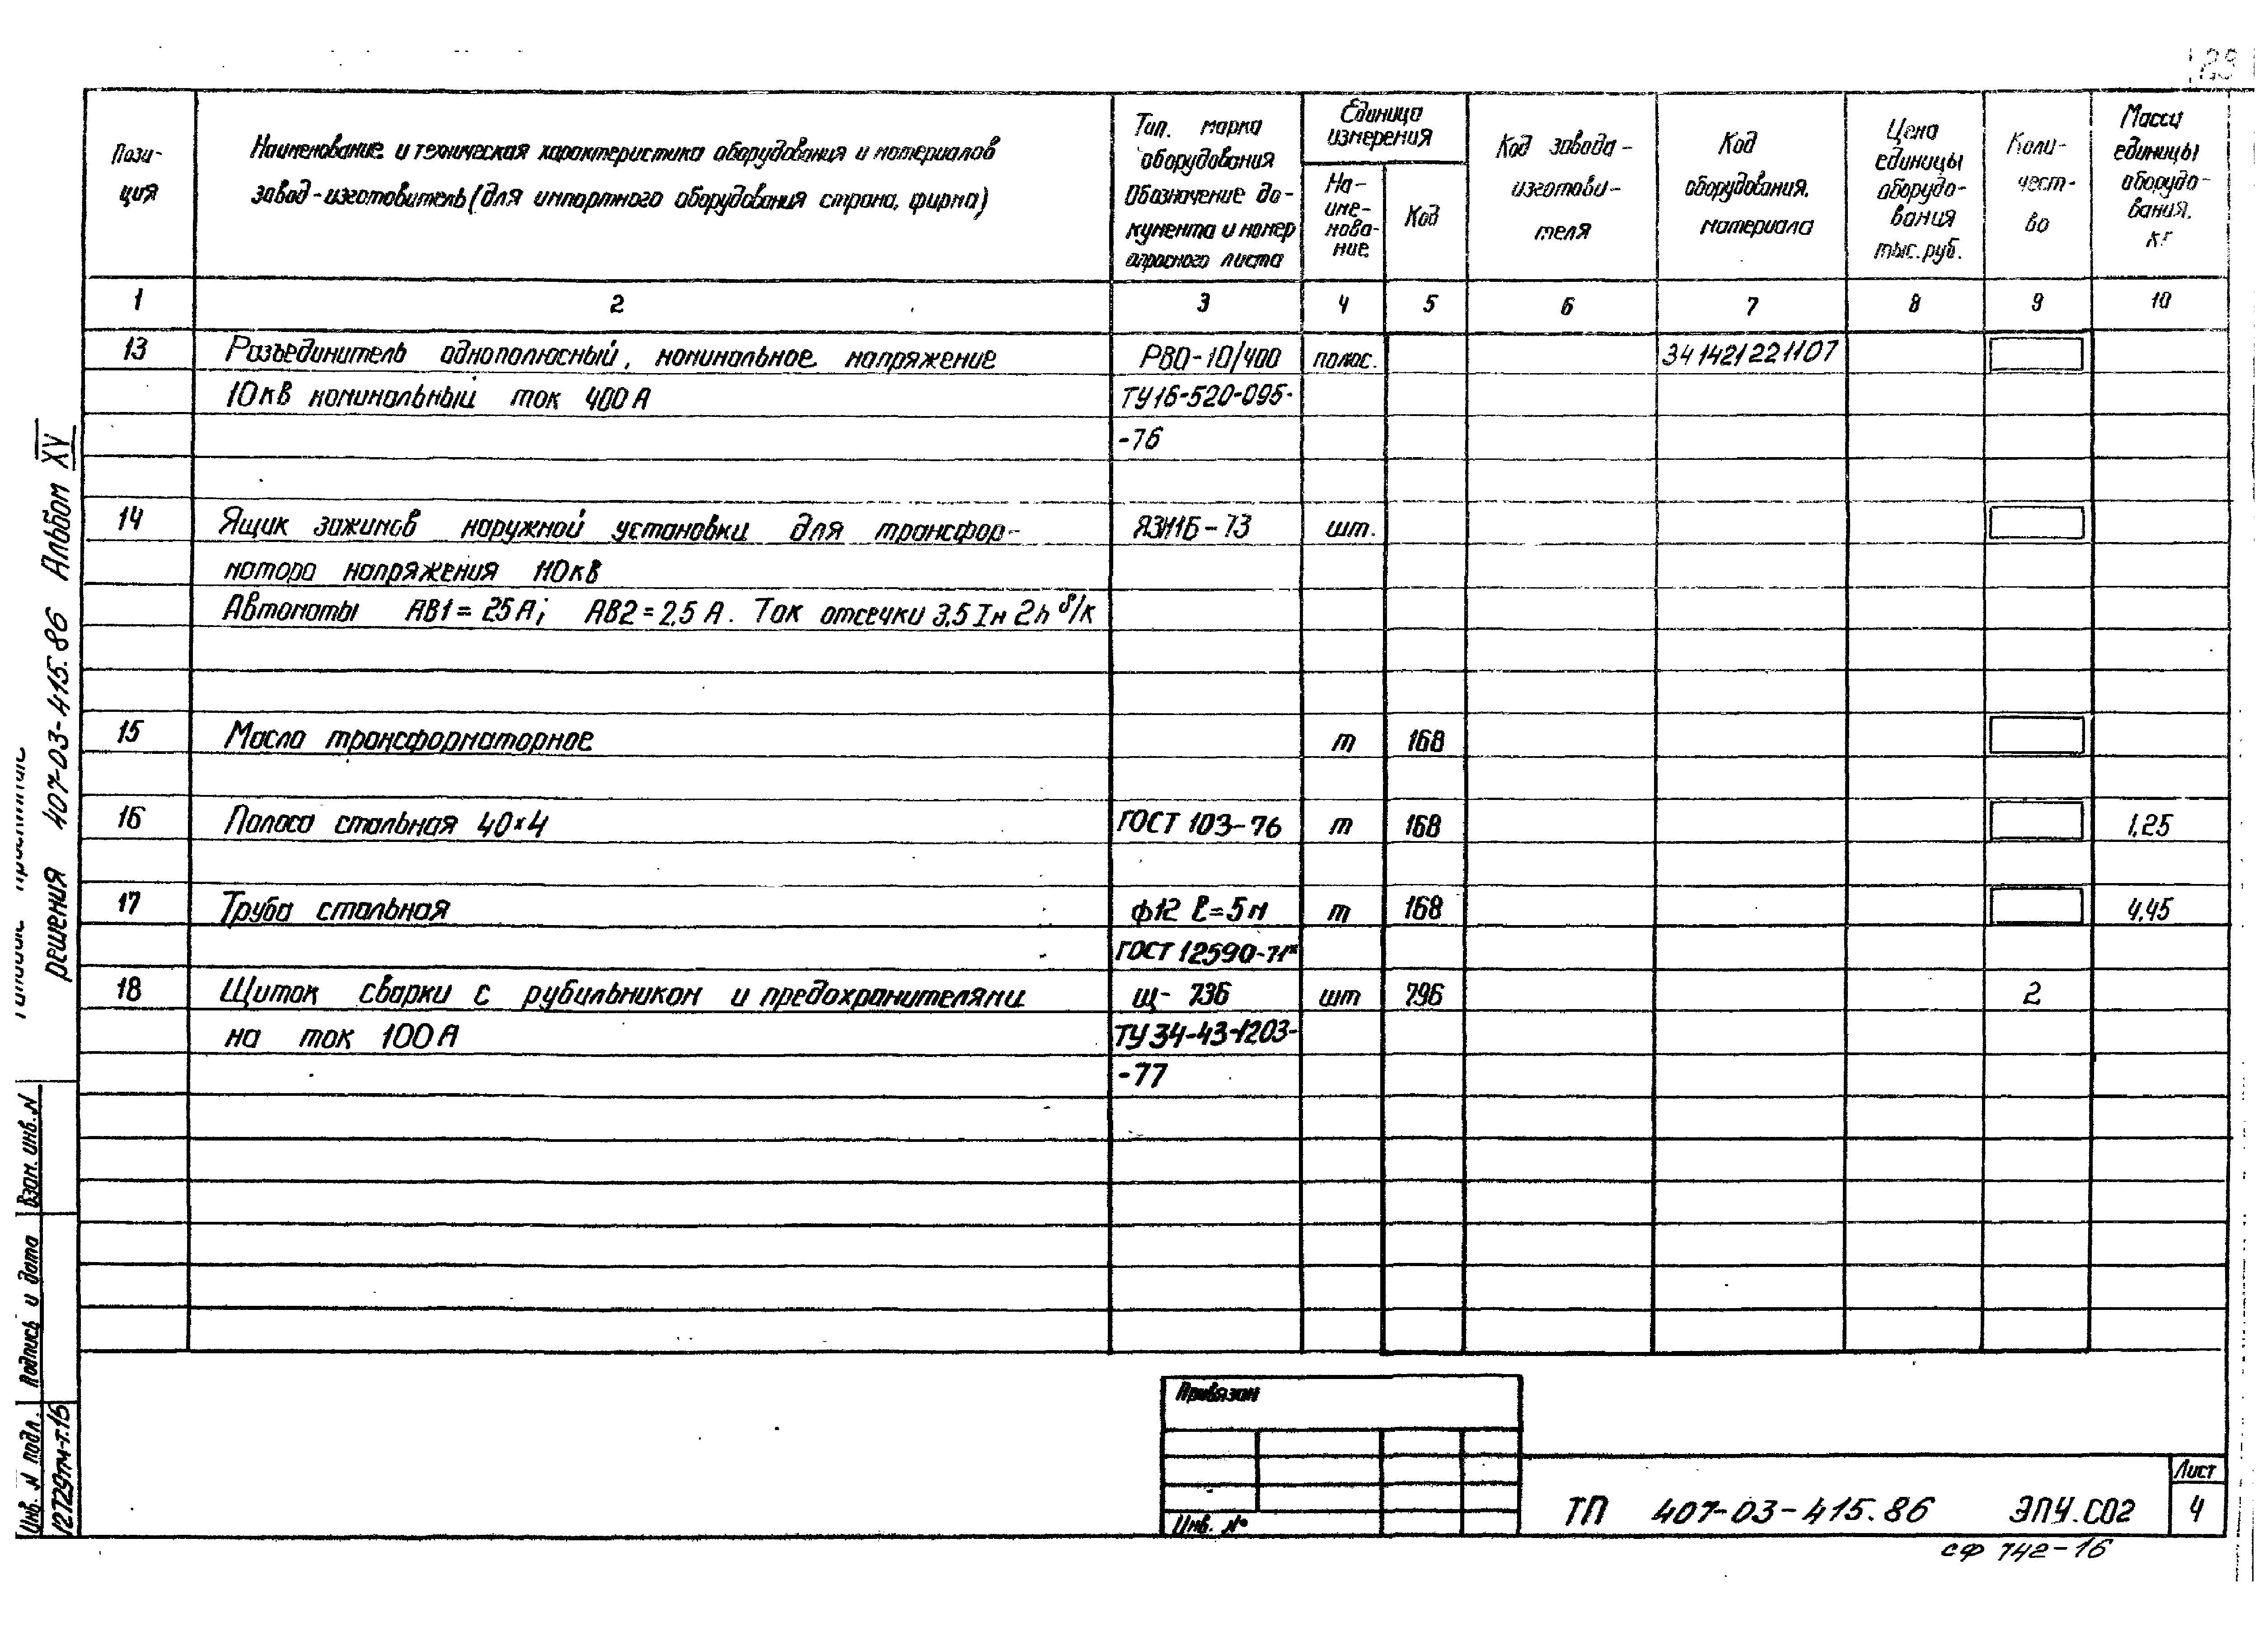 Пози-
ция
Наименование и техническая характеристика оборудования и материалов
завод-изготовитель (для импортного оборудования страна, фирма)
Тип. марка
оборудования
Обозначение до-
кумента и номер
опросного листа
Единица
измерения
На-
име-
нова-
ние
Код
Код завода-
изготови-
теля
Код
оборудования,
материала
Цена
единицы
оборудо-
вания
тыс. руб.
Коли-
чест-
во
Масса
единицы
оборудо-
вания,
кг
1 2 3 4 5 6 7 8 9 10
13 Разъединитель однополюсный, номинальное напряжение РВО-10/400 полюс. 341421221107
10кВ номинальный ток 400А ТУ16-520-095-
-76
14 Ящик зажимов наружной установки для трансфор- ЯЗН1Б-73 шт.
матора напряжения 110кВ
Автоматы АВ1=25А; АВ2=2,5А. Ток отсечки 3,5Iн 2п б/к
15 Масло трансформаторное т 168
16 Полоса стальная 40×4 ГОСТ 103-76 т 168 1,25
17 Труба стальная ф12 ℓ=5м т 168 4,45
ГОСТ 12590-71*
18 Щиток сварки с рубильником и предохранителями щ-736 шт 796 2
на ток 100А ТУ34-43-1203-
-77
решения 407-03-415.86 Альбом XV
Взам. инв. N
Подпись и дата
Инв. N подл.
12729тм-т.16
Привязан
Инв. №
ТП 407-03-415.86 ЭПУ.СО2
Лист
4
сф 742-16